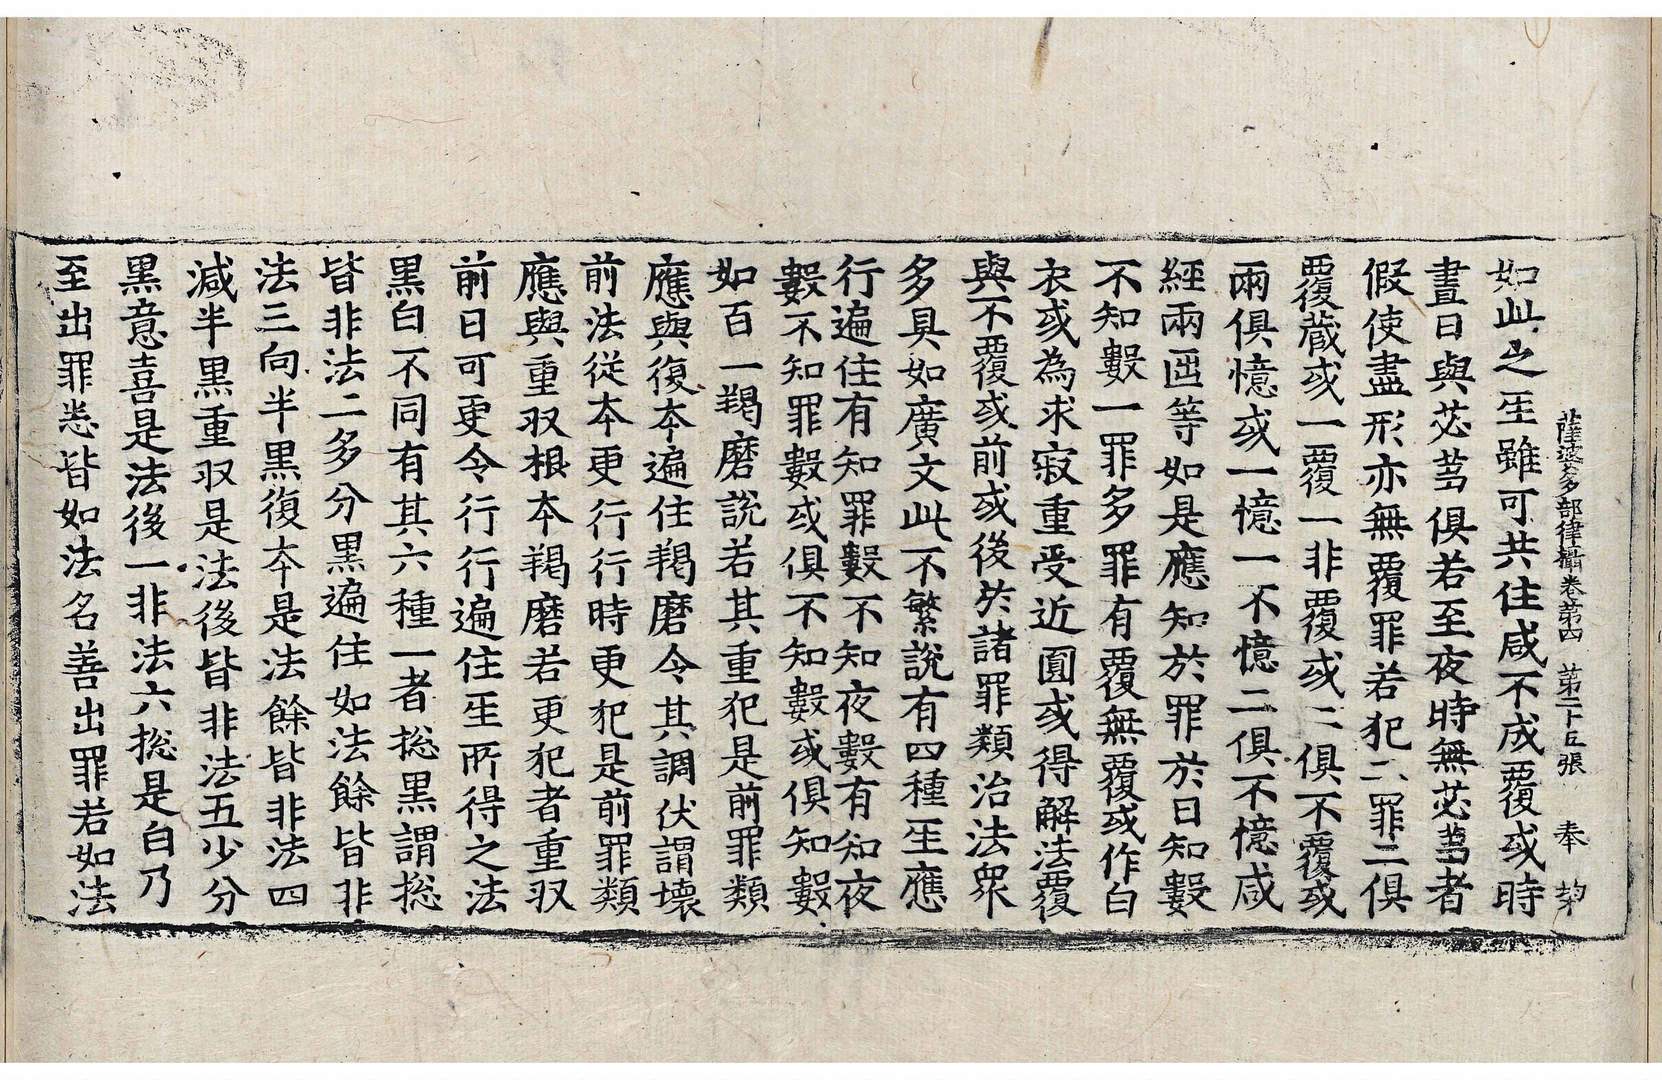 薩婆多部律攝卷第四 第二十五張 奉
如此之𤯔雖可共住咸不成覆或時
晝日與苾芻俱若至夜時無苾芻者
假使盡形亦無覆罪若犯二罪二俱
覆藏或一覆一非覆或二俱不覆或
兩俱憶或一憶一不憶二俱不憶咸
經兩𠥱等如是應知於罪於日知數
不知數一罪多罪有覆無覆或作白
衣或為求寂重受近圓或得解法覆
與不覆或前或後於諸罪類治法眾
多具如廣文此不繁說有四種𤯔應
行遍住有知罪數不知夜數有知夜
數不知罪數或俱不知數或俱知數
如百一羯磨說若其重犯是前罪類
應與復本遍住羯磨令其調伏謂壞
前法從本更行行時更犯是前罪類
應與重収根本羯磨若更犯者重収
前日可更令行行遍住𤯔所得之法
黑白不同有其六種一者捴黑謂捴
皆非法二多分黑遍住如法餘皆非
法三向半黑復本是法餘皆非法四
減半黑重収是法後皆非法五少分
黑意喜是法後一非法六捴是白乃
至出罪悉皆如法名善出罪若如法